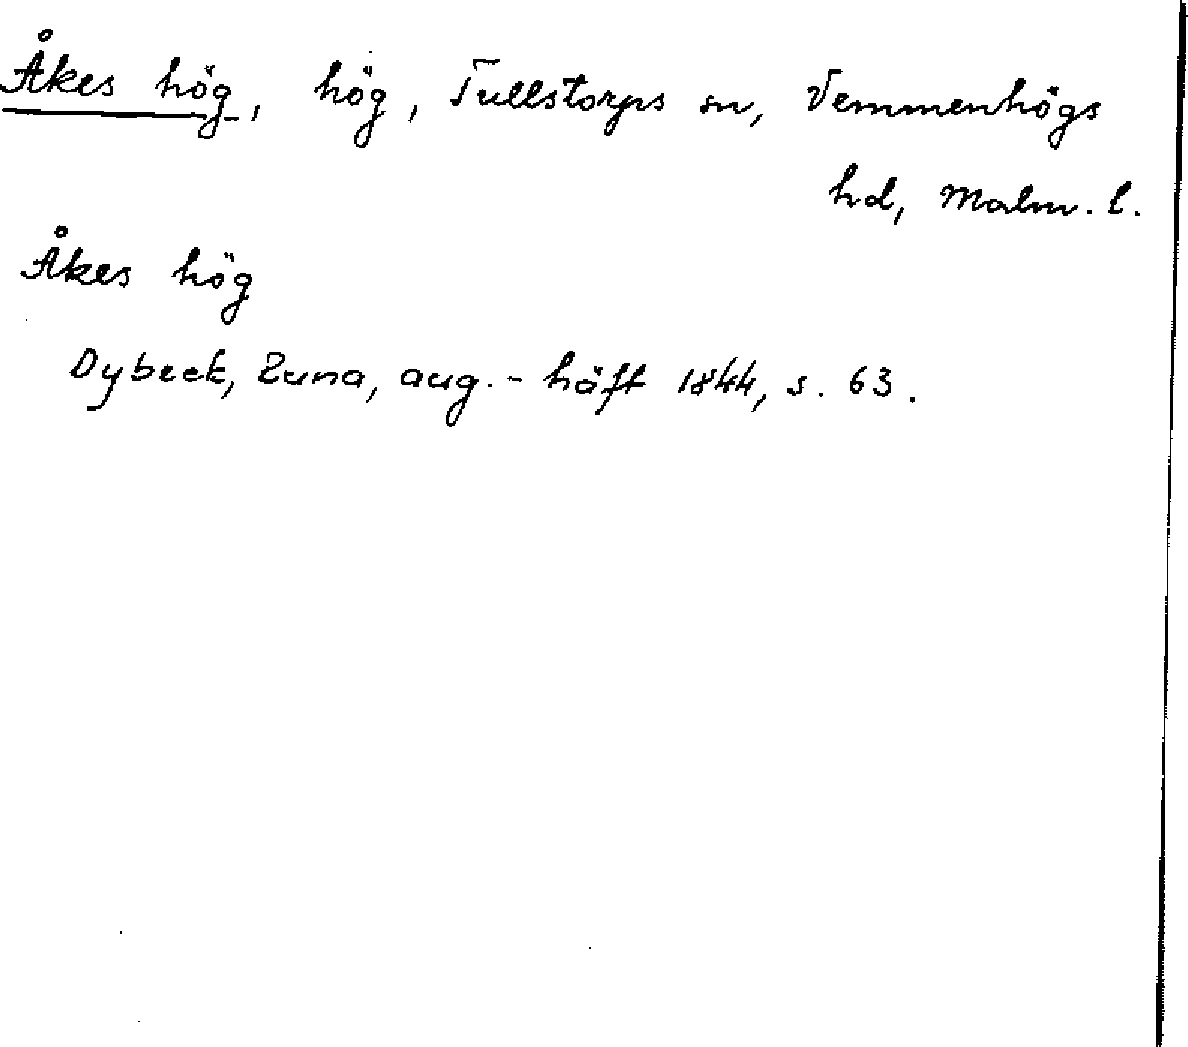 Åkes hög, hög, Tullstorps sn, Vemmenhögs
hd, Malm. l.
Åkes hög
Dybeck, Runa, aug.-häft 1844, s. 63.